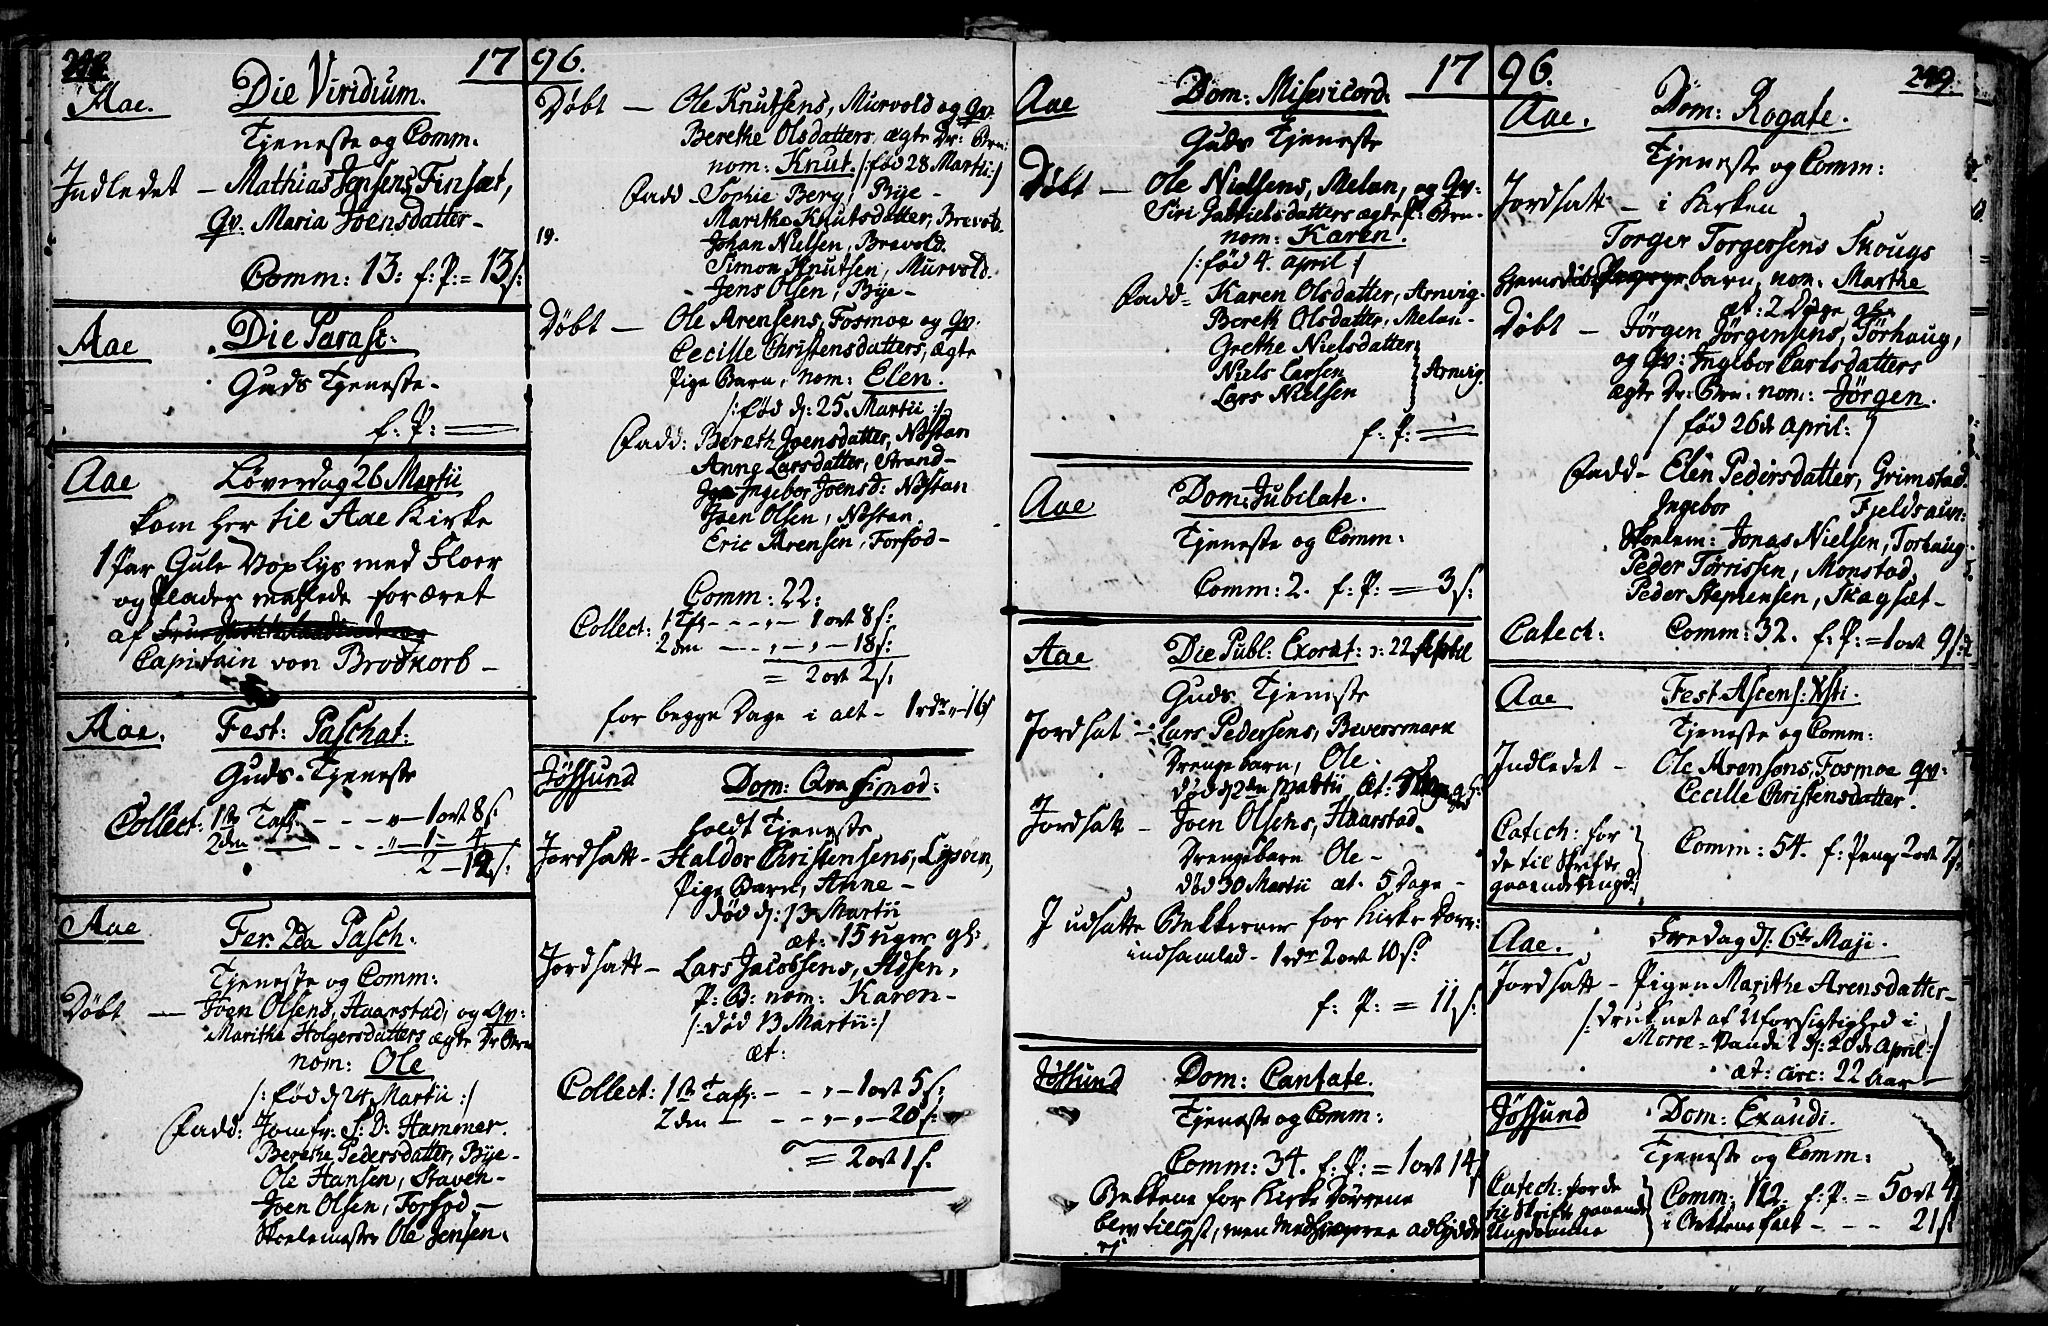 1796.
Aae. Die Viridium.
Tjeneste og Comm.
Indledet – Mathias Jensens Finsæt,
Qv. Maria Joensdatter –
Comm: 13: f: P: = 13 s:
Aae Die Parasc:
Guds Tjeneste –
f: P: =
Aae Løverdag 26 Martii
kom her til Aae Kirke
1 Par Gule Voxlys med Floer
og Plader malede foræret
af
Capitain von Brodkorb –
Aae. Fest: Paschat:
Guds Tjeneste
Collect: 1te Tafl: – – – „ – 1 ort 8 s.
2den – – – „ – 1 – 4
2 – 12 s:
Aae Fer: 2da Pasch:
Tjeneste og Comm:
Døbt — Joen Olsens, Haarstad, og Qv:
Marithe Holgersdatters ægte Dr. Brn
nom: Ole
/: født d 24 Martii :/
Fadd: Jomfr: S: D: Hammer.
Berethe Pedersdatter, Bye –
Ole Hansen, Staven –
Joen Olsen, Forsod –
Skolemester Ole Jensen.
Døbt — Ole Knutsens, Murvold og Qv.
Berethe Olsdatters, ægte Dr: Brn:
nom: Knut. /: fød 28 Martii :/
Fadd – Sophie Berg, Bye –
Marithe Knutsdatter, Brevold.
19. Johan Nielsen, Brevold.
Simon Knutsen, Murvold.
– Jens Olsen, Bye –
Døbt — Ole Arensens, Fosmoe og Qv:
Cecille Christensdatters, ægte
Pige Barn, nom: Elen.
/: fød d: 25. Martii :/
Fadd: Bereth Joensdatter, Nøstan
Anne Larsdatter, Strand –
Ingebor Joensd: Nøstan
Joen Olsen, Nøstan
Eric Arensen, Forsod –
Comm: 22:
Collect: 1 Tfl – – – „ – 1 ort 8 s:
2den – – – „ – „ – 18 s:
= 2 ort 2 s,
for begge Dage i alt – 1 rdr „ – 16 s
Jøssund Dom: Quasimod:
holdt Tjeneste
Jordsatt – Haldor Christensens, Lysøen,
Pige Barn, Anne –
død d: 13 Martii
æt: 15 uger gl:
Jordsatt – Lars Jacobsens, Aldsen,
P: B: nom: Karen –
/: død 13 Martii :/
æt:
Collect: 1te Tafl: – – „ – 1 ort 5 s:
2den – – – „ – „ – 20 s:
= 2 ort 1 s.
1796. 249.
Aae Dom: Misericord:
Guds Tjeneste
Døbt — Ole Nielsens, Melan, og Qv:
Siri Gabrielsdatters ægte P: Brn –
nom: Karen.
/: fød 4. April :/
Fadd = Karen Olsdatter, Arnvig.
Bereth Olsdatter, Melan –
Grethe Nielsdatter
Niels Larsen } Arnvig.
Lars Nielsen
f: P: =
Aae Dom: Jubilate.
Tjeneste og Comm:
Comm: 2. f: P: = 3 s:
Aae Die Publ: Exorat: d: 22 April
Guds Tjeneste
Jordsat – Lars Pedersens, Beversmark
Drengebarn, Ole.
død d 2den Martii æt:
Jordsatt – Joen Olsens, Haarstad.
Drengebarn Ole –
død 30 Martii æt. 5 Dage –
I udsatte Bekkener for Kirke Dørr:
indsamled – 1 rdr 2 ort 10 s:
f: P: = 11 s:
Jøssund Dom: Cantate.
Tjeneste og Comm:
Comm: 34. f: P: = 1 ort 14 s
Bekkene for Kirke Dørrene
blev tillyst, men adlydde
ej
Aae. Dom: Rogate.
Tjeneste og Comm:
Jordsatt – i Kirken
Torger Torgersens Skougs
hjemedøbte barn, nom. Marthe
æt: 2 Dage gl:
Døbt — Jørgen Jørgensens, Tørhaug,
og Qv: Ingebor Carlsdatters
ægte Dr: Brn: nom: Jørgen.
/ fød 26de April: /
Fadd – Elen Pedersdatter, Grimstad.
Ingebor Fjeldsaun:
Skolem: Jonas Nielsen, Torhaug
Peder Tørrissen, Monstad
Peder Stephensen, Skagsæt –
Catech: Comm: 32. f: P: = 1 ort 9 s:
Aae Fest Ascens: Xsti.
Tjeneste og Comm:
Indledet – Ole Arensens, Fosmoe Qv:
Cecille Christensdatter.
Catech: for
de til Skrifte
gaaende Ungd: } Comm: 54. f: Peng: 2 ort 7 s:
Aae. Fredag d: 6te Maji.
Jordsatt – Pigen Marithe Arensdatter –
/: druknet af Uforsigtighed i
Morre = Vandet d: 20de April :/
æt: circ: 22 Aar –
Jøssund Dom: Exaudi.
Tjeneste og Comm:
Catech: for de
til Skrifte gaaende
Ungdomme } Comm: 112. f: P: = 5 ort 4
i Bekkene falt – – – 21 s.